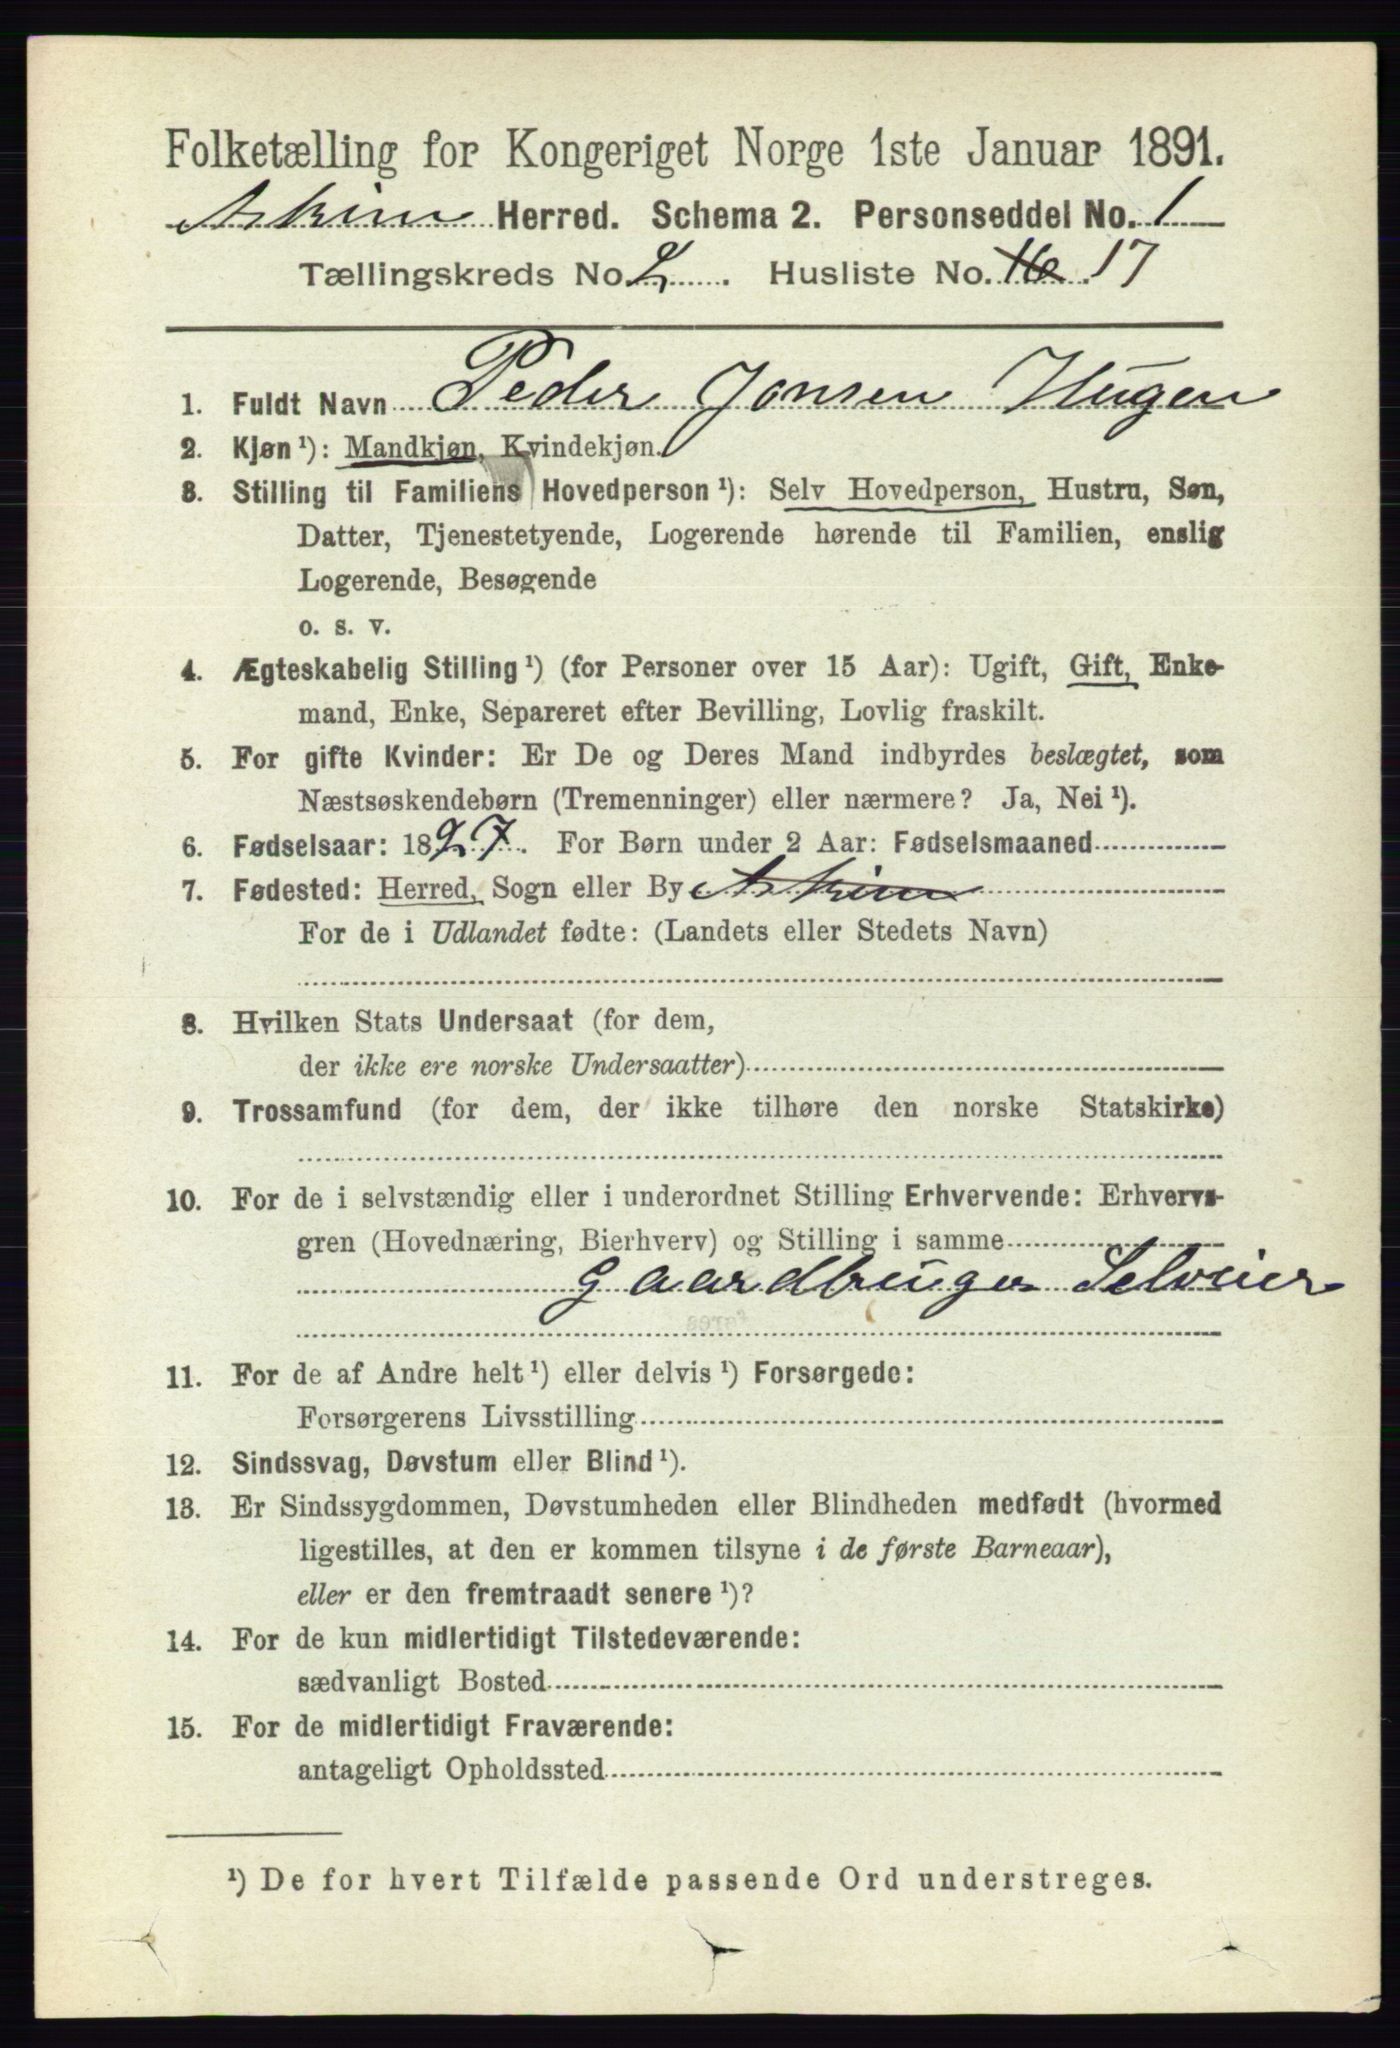 Folketælling for Kongeriget Norge 1ste Januar 1891.
Askim Herred. Schema 2. Personseddel No. 1
Tællingskreds No. 2. Husliste No. 16. 17
1. Fuldt Navn Peder Jonsen Hugen
2. Kjøn ¹): Mandkjøn, Kvindekjøn.
3. Stilling til Familiens Hovedperson ¹): Selv Hovedperson, Hustru, Søn,
Datter, Tjenestetyende, Logerende hørende til Familien, enslig
Logerende, Besøgende
o. s. v.
4. Ægteskabelig Stilling ¹) (for Personer over 15 Aar): Ugift, Gift, Enke-
mand, Enke, Separeret efter Bevilling, Lovlig fraskilt.
5. For gifte Kvinder: Er De og Deres Mand indbyrdes beslægtet, som
Næstsøskendebørn (Tremenninger) eller nærmere? Ja, Nei ¹).
6. Fødselsaar: 1827. For Børn under 2 Aar: Fødselsmaaned
7. Fødested: Herred, Sogn eller By Askim
For de i Udlandet fødte: (Landets eller Stedets Navn)
8. Hvilken Stats Undersaat (for dem,
der ikke ere norske Undersaatter)
9. Trossamfund (for dem, der ikke tilhøre den norske Statskirke)
10. For de i selvstændig eller i underordnet Stilling Erhvervende: Erhvervs-
gren (Hovednæring, Bierhverv) og Stilling i samme
Gaardbruger Selveier
11. For de af Andre helt ¹) eller delvis ¹) Forsørgede:
Forsørgerens Livsstilling
12. Sindssvag, Døvstum eller Blind ¹).
13. Er Sindssygdommen, Døvstumheden eller Blindheden medfødt (hvormed
ligestilles, at den er kommen tilsyne i de første Barneaar),
eller er den fremtraadt senere ¹)?
14. For de kun midlertidigt Tilstedeværende:
sædvanligt Bosted
15. For de midlertidigt Fraværende:
antageligt Opholdssted
¹) De for hvert Tilfælde passende Ord understreges.